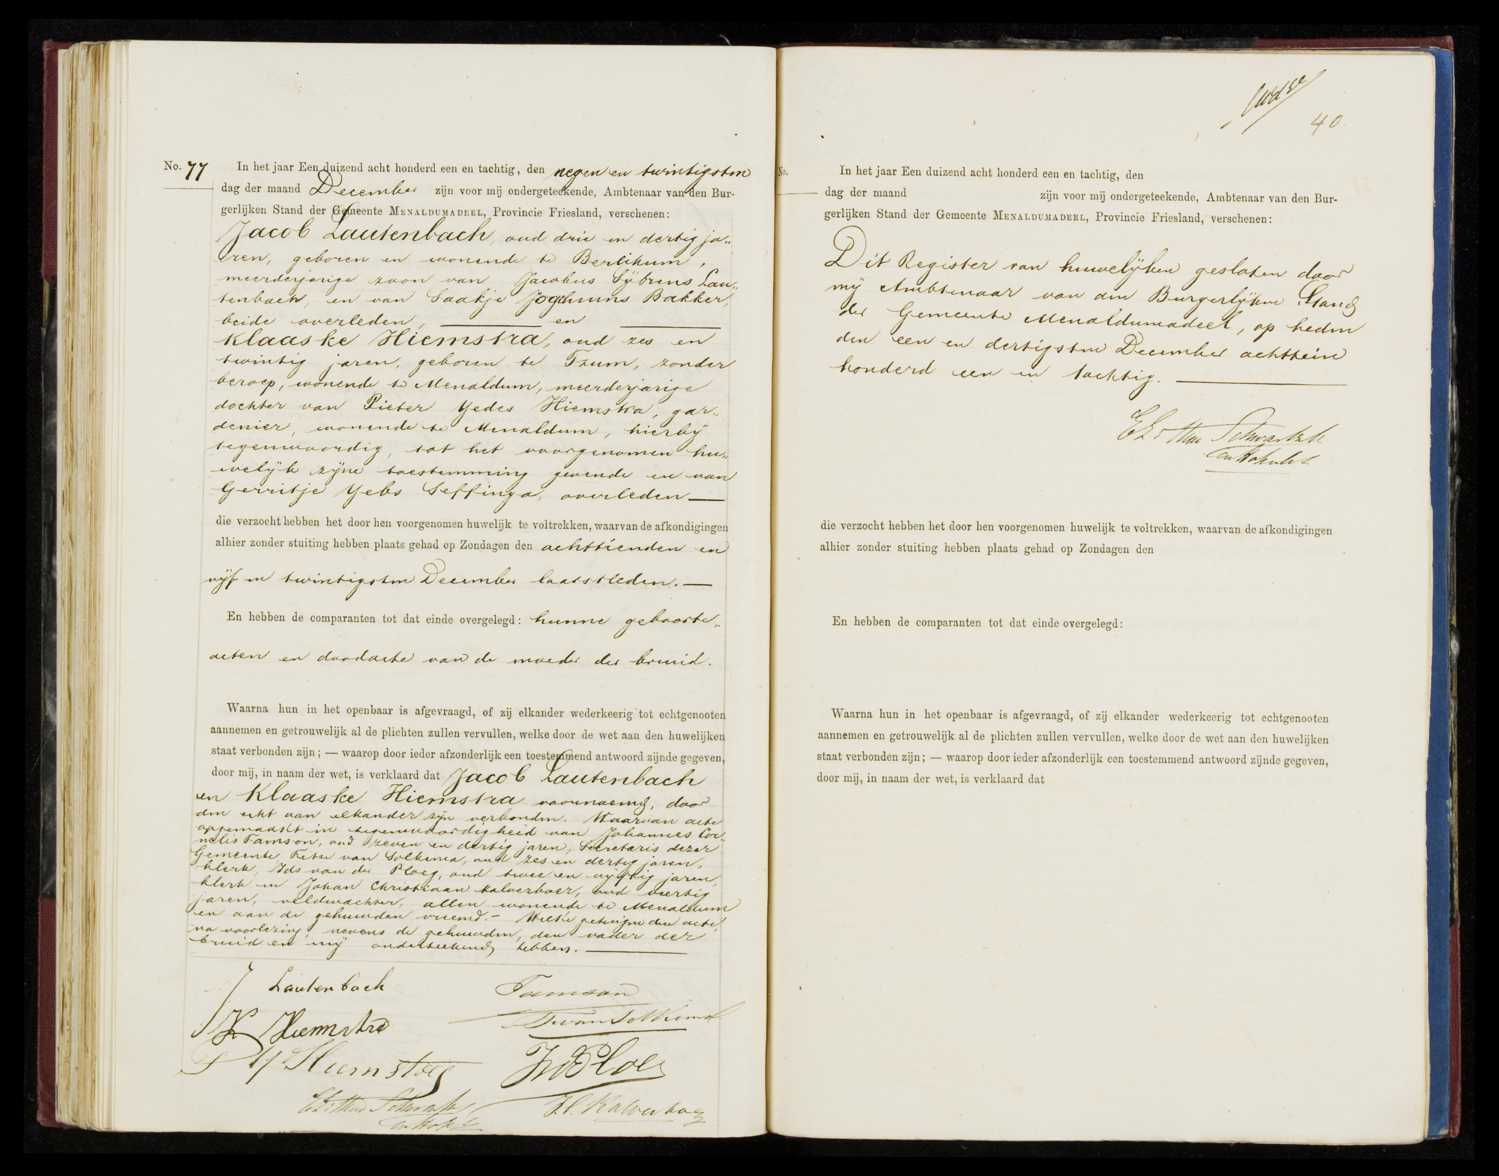 No. 77 In het jaar Een duizend acht honderd een en tachtig, den negen en twintigsten
dag der maand December zijn voor mij ondergeteekende, Ambtenaar van den Bur-
gerlijken Stand der Gemeente MENALDUMADEEL, Provincie Friesland, verschenen:
Jacob Lautenbach, oud drie en dertig ja-
ren, geboren en wonende te Berlikum,
meerderjarige zoon van Jacobus Sÿbrens Lau-
tenbach, en van Saakje Jochums Bakker,
beide overleden, en
Klaaske Hiemstra, oud zes en
twintig jaren, geboren te Tzum, zonder
beroep, wonende te Menaldum, meerderjarige
dochter van Pieter Yedes Hiemstra, gar-
denier, wonende te Menaldum, hierbÿ
tegenwoordig, tot het voorgenomen hu-
welÿk zÿne toestemming gevende en van
Gerritje Yebs Seffinga, overleden
die verzocht hebben het door hen voorgenomen huwelijk te voltrekken, waarvan de afkondigingen
alhier zonder stuiting hebben plaats gehad op Zondagen den achttienden en
vÿf en twintigsten December laatstleden.
En hebben de comparanten tot dat einde overgelegd: hunne geboorte-
acten en doodacte van de moeder der bruid.
Waarna hun in het openbaar is afgevraagd, of zij elkander wederkeerig tot echtgenooten
aannemen en getrouwelijk al de plichten zullen vervullen, welke door de wet aan den huwelijken
staat verbonden zijn; — waarop door ieder afzonderlijk een toestemmend antwoord zijnde gegeven,
door mij, in naam der wet, is verklaard dat Jacob Lautenbach
en Klaaske Hiemstra voornoemd, door
den echt aan elkander zÿn verbonden. Waarvan acte
opgemaakt in tegenwoordigheid van Johannes Cor-
nelis Tamson, oud zeven en dertig jaren, Secretaris dezer
Gemeente, Feite van Solkema, oud zes en dertig jaren,
klerk, Ids van der Ploeg, oud twee en vÿftig jaren,
klerk en Johan Christiaan Kalverboer, oud veertig
jaren, veldwachter, allen wonende te Menaldum
en aan de gehuwden vreemd. – Welke getuigen deze acte,
na voorlezing nevens de gehuwden, den vader der
bruid en mÿ onderteekend hebben.
J Lautenbach
Tamson
K Hiemstra
F van Solkema
P Y Hiemstra
IvdPloeg
J.C. Kalverboer
40.
No. In het jaar Een duizend acht honderd een en tachtig, den
dag der maand zijn voor mij ondergeteekende, Ambtenaar van den Bur-
gerlijken Stand der Gemeente MENALDUMADEEL, Provincie Friesland, verschenen:
Dit Register van huwelÿken gesloten door
mÿ Ambtenaar van den Burgerlÿken Stand
der Gemeente Menaldumadeel, op heden
den een en dertigsten December achttien
honderd een en tachtig.
die verzocht hebben het door hen voorgenomen huwelijk te voltrekken, waarvan de afkondigingen
alhier zonder stuiting hebben plaats gehad op Zondagen den
En hebben de comparanten tot dat einde overgelegd:
Waarna hun in het openbaar is afgevraagd, of zij elkander wederkeerig tot echtgenooten
aannemen en getrouwelijk al de plichten zullen vervullen, welke door de wet aan den huwelijken
staat verbonden zijn; — waarop door ieder afzonderlijk een toestemmend antwoord zijnde gegeven,
door mij, in naam der wet, is verklaard dat